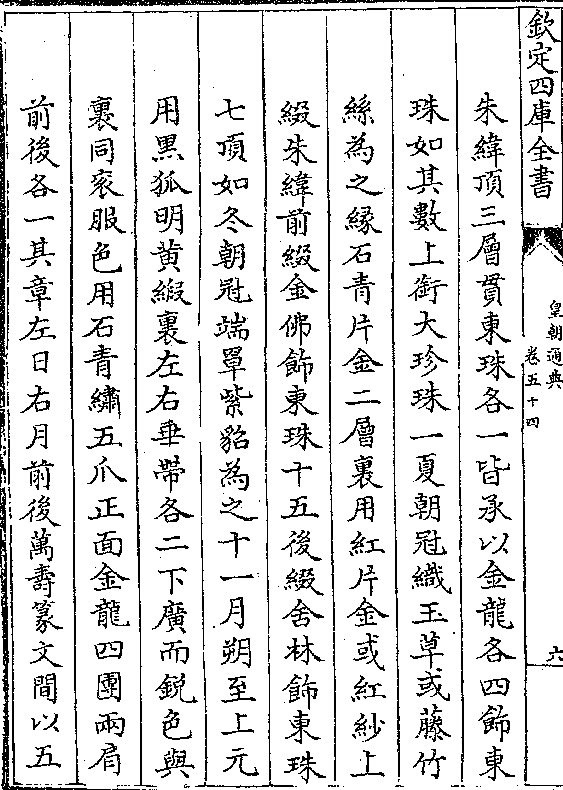 欽定四庫全書
皇朝通典
卷五十四
六
朱緯頂三層貫東珠各一皆承以金龍各四飾東
珠如其數上銜大珍珠一夏朝冠織玉草或藤竹
絲為之緣石青片金二層裏用紅片金或紅紗上
綴朱緯前綴金佛飾東珠十五後綴舍林飾東珠
七頂如冬朝冠端罩紫貂為之十一月朔至上元
用黒狐明黄緞裏左右垂帶各二下廣而鋭色與
裏同衮服色用石青繡五爪正面金龍四團兩肩
前後各一其章左日右月前後萬壽篆文間以五